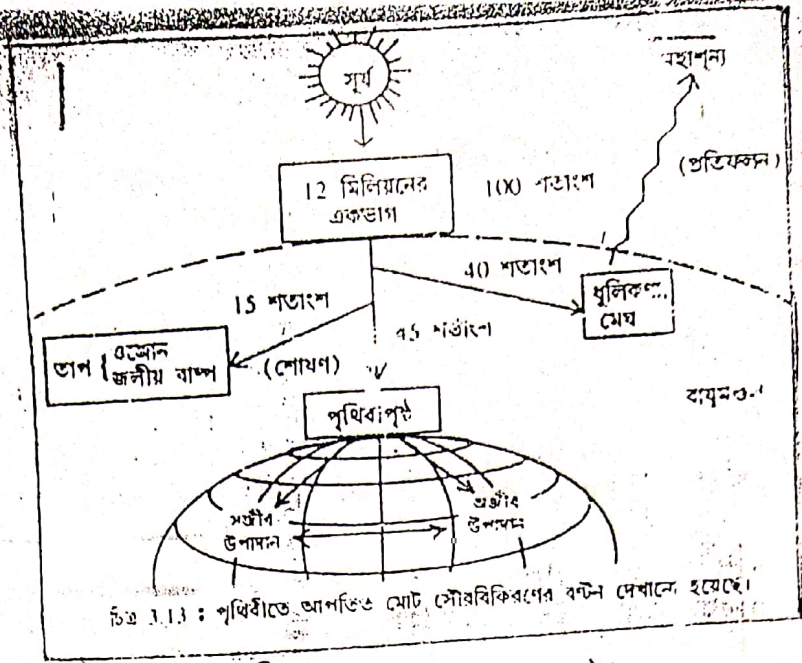 সূর্য
মহাশূন্য
12 মিলিয়নের
একভাগ
100 শতাংশ
(প্রতিফলন)
40 শতাংশ
ধূলিকণা,
মেঘ
15 শতাংশ
45 শতাংশ
তাপ { ওজোন
জলীয় বাষ্প
(শোষণ)
বায়ুমণ্ডল
পৃথিবীপৃষ্ঠ
সজীব
উপাদান
অজীব
উপাদান
চিত্র 3.13 : পৃথিবীতে আপতিত মোট সৌরবিকিরণের বণ্টন দেখানো হয়েছে।